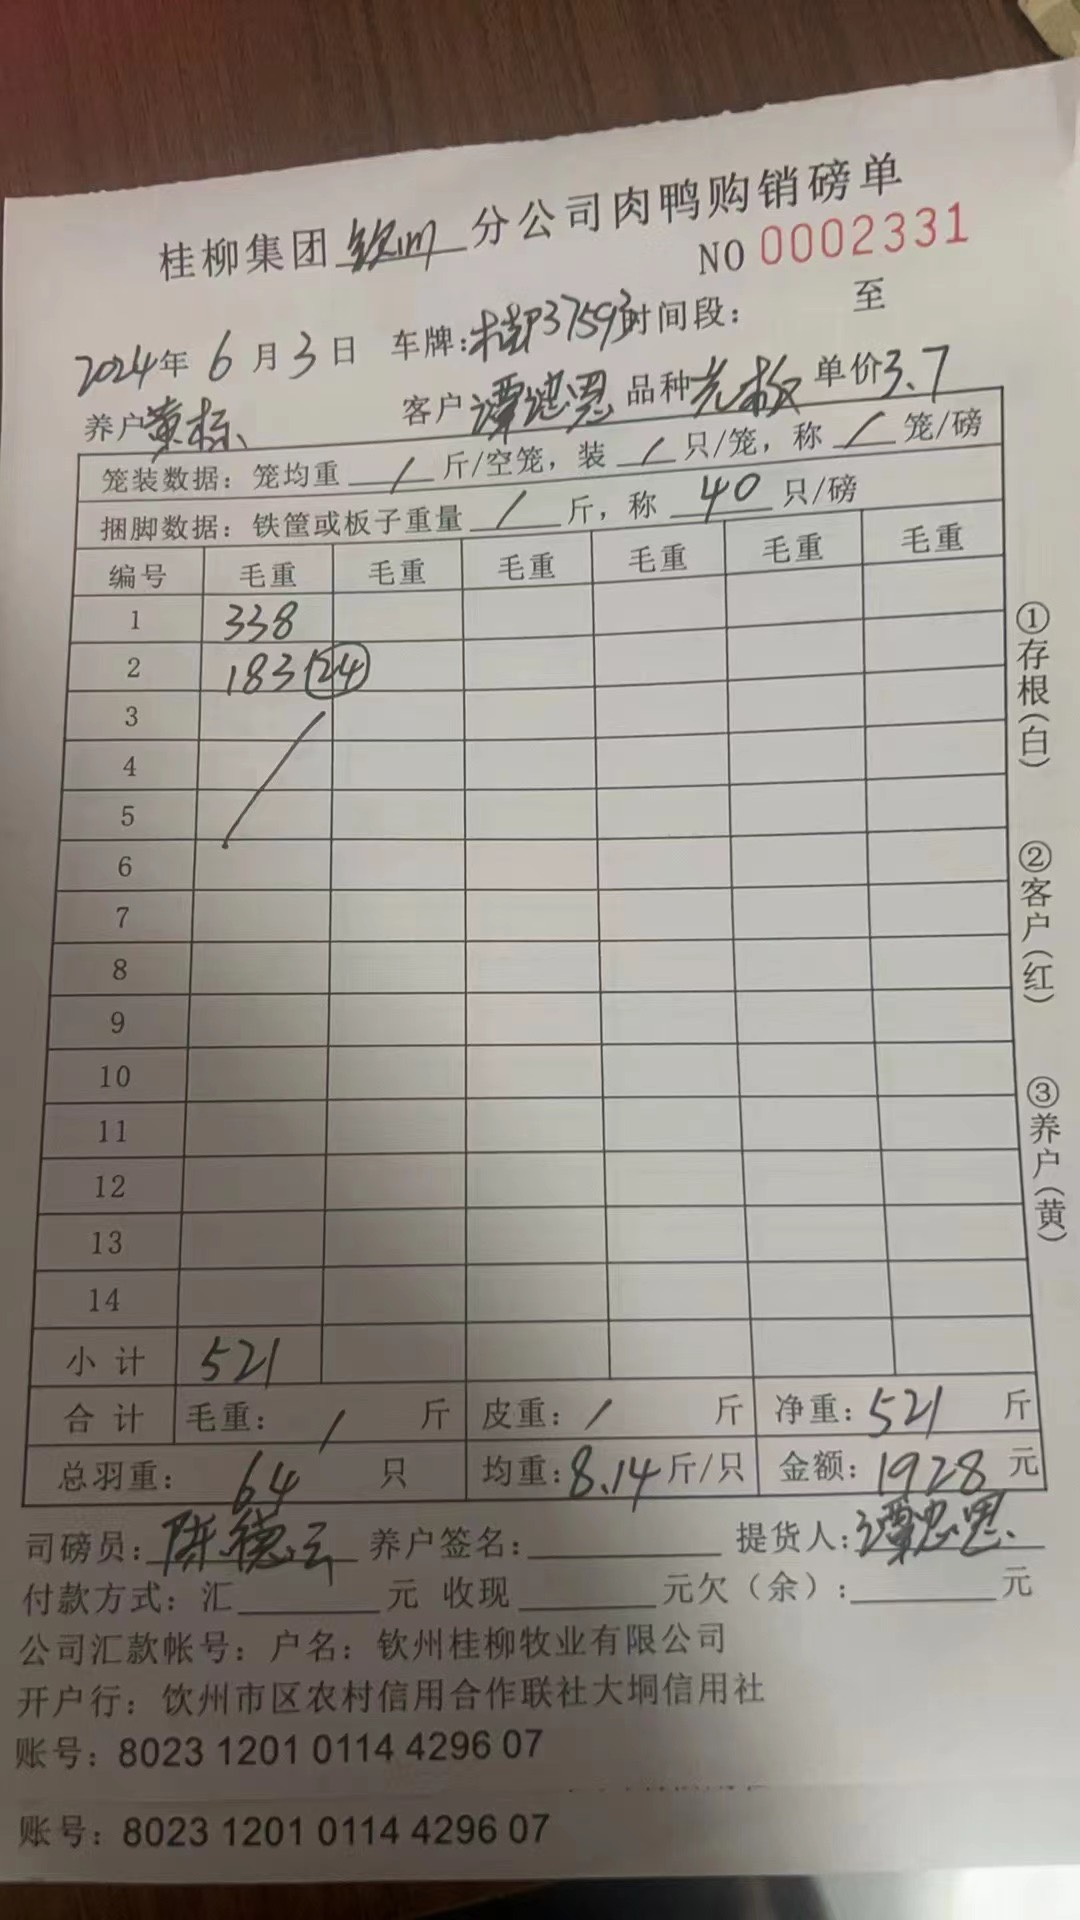 桂柳集团钦州分公司肉鸭购销磅单
NO 0002331
2024年 6月 3日 车牌:桂P37593时间段: 至
养户黄栋 客户谭忠恩 品种 单价3.7
笼装数据：笼均重 / 斤/空笼，装 / 只/笼，称 / 笼/磅
捆脚数据：铁筐或板子重量 / 斤，称 40 只/磅
编号 毛重 毛重 毛重 毛重 毛重 毛重
1 338
2 183 24
3
4
5
6
7
8
9
10
11
12
13
14
小 计 521
合 计 毛重： / 斤 皮重： / 斤 净重：521 斤
总羽重： 64 只 均重：8.14斤/只 金额：1928元
司磅员：陈德云 养户签名： 提货人：谭忠恩
付款方式：汇 元 收现 元欠（余）： 元
公司汇款帐号：户名：钦州桂柳牧业有限公司
开户行：饮州市区农村信用合作联社大垌信用社
账号：8023 1201 0114 4296 07
账号：8023 1201 0114 4296 07
①存根（白） ②客户（红） ③养户（黄）